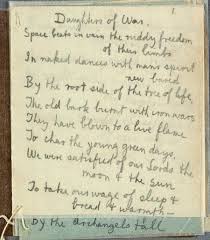 Daughters of War.
Space beats in vain the ruddy freedom
of their limbs
In naked dances with man's spirit
new bared
By the root side of the tree of life,
The old bark burnt with iron wars
They have blown to a live flame
To char the young green days,
We were satisfied of our Lords the
moon & the sun
To take our wage of sleep &
bread & warmth—
by the archangels tall